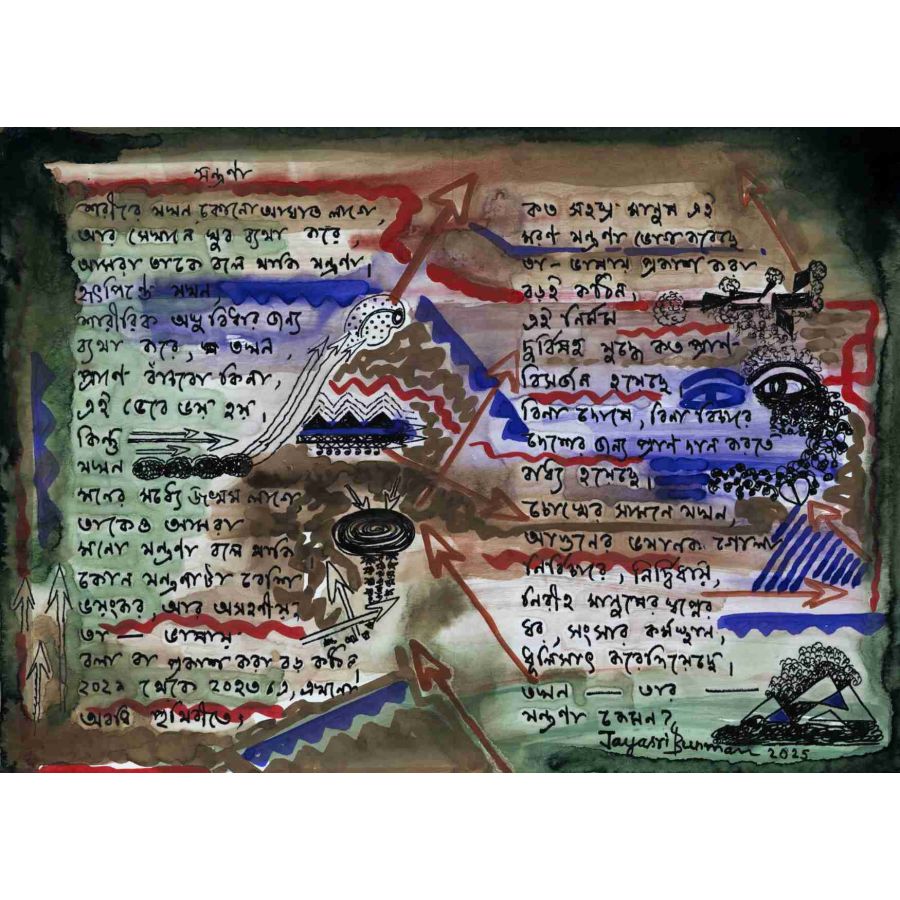 যন্ত্রণা
শরীরে যখন কোনো আঘাত লাগে,
আর সেখানে খুব ব্যথা করে,
আমরা তাকে বলে থাকি যন্ত্রণা।
হৃৎপিণ্ডে যখন,
শারীরিক অসুবিধার জন্য
ব্যথা করে, তখন,
প্রাণে বাঁচবো কিনা,
এই ভেবে ভয় হয়,
কিন্তু
যখন
মনের মধ্যে জখম লাগে
তাকেও আমরা
মনো যন্ত্রণা বলে থাকি
কোন যন্ত্রণাটা বেশি
ভয়ংকর, আর অসহনীয়?
তা — ভাষায়
বলা বা প্রকাশ করা বড় কঠিন,
থেকে ২০২৩ এ, এখনো
অবধি পৃথিবীতে,
কত সহস্র মানুষ এই
মরণ যন্ত্রণা ভোগ করেছে
তা- ভাষায় প্রকাশ করা
বড়ই কঠিন,
এই নির্মম
দুর্বিসহ যুদ্ধে কত প্রাণ-
বিসর্জন হয়েছে
বিনা দোষে, বিনা বিচারে
দেশের জন্য প্রাণ দান করতে
বাধ্য হয়েছে।
চোখের সামনে যখন,
আগুনের ভয়ানক গোলা
নির্বিচারে, নির্দ্বিধায়,
নিরীহ মানুষের স্বপ্নের
ঘর, সংসার কর্মস্থান,
ধুলিসাৎ করেদিয়েছে,
তখন — তার —
যন্ত্রণা কেমন?
Jayasri Burman 2025